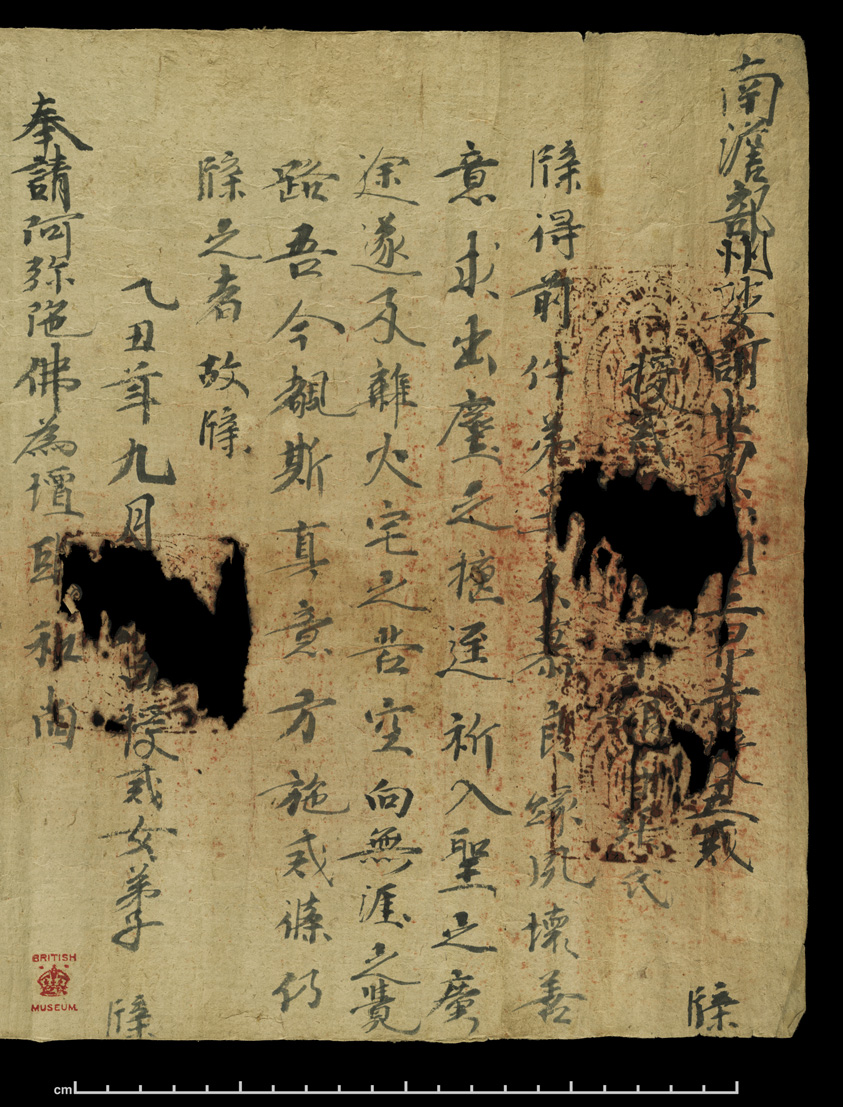 南澹部州娑訶世界三界寺授五戒 牒
授戒氏
牒得前件弟子久慕良緣夙壞善
意求出塵之擅逕祈入聖之廣
途遂乃離火宅之苦空向無涯之覺
路吾今覩斯真意方施戒條仍
牒之者故牒
乙丑年九月日授戒女弟子 牒
奉請阿弥陁佛為壇頭和尚
BRITISH
MUSEUM
cm